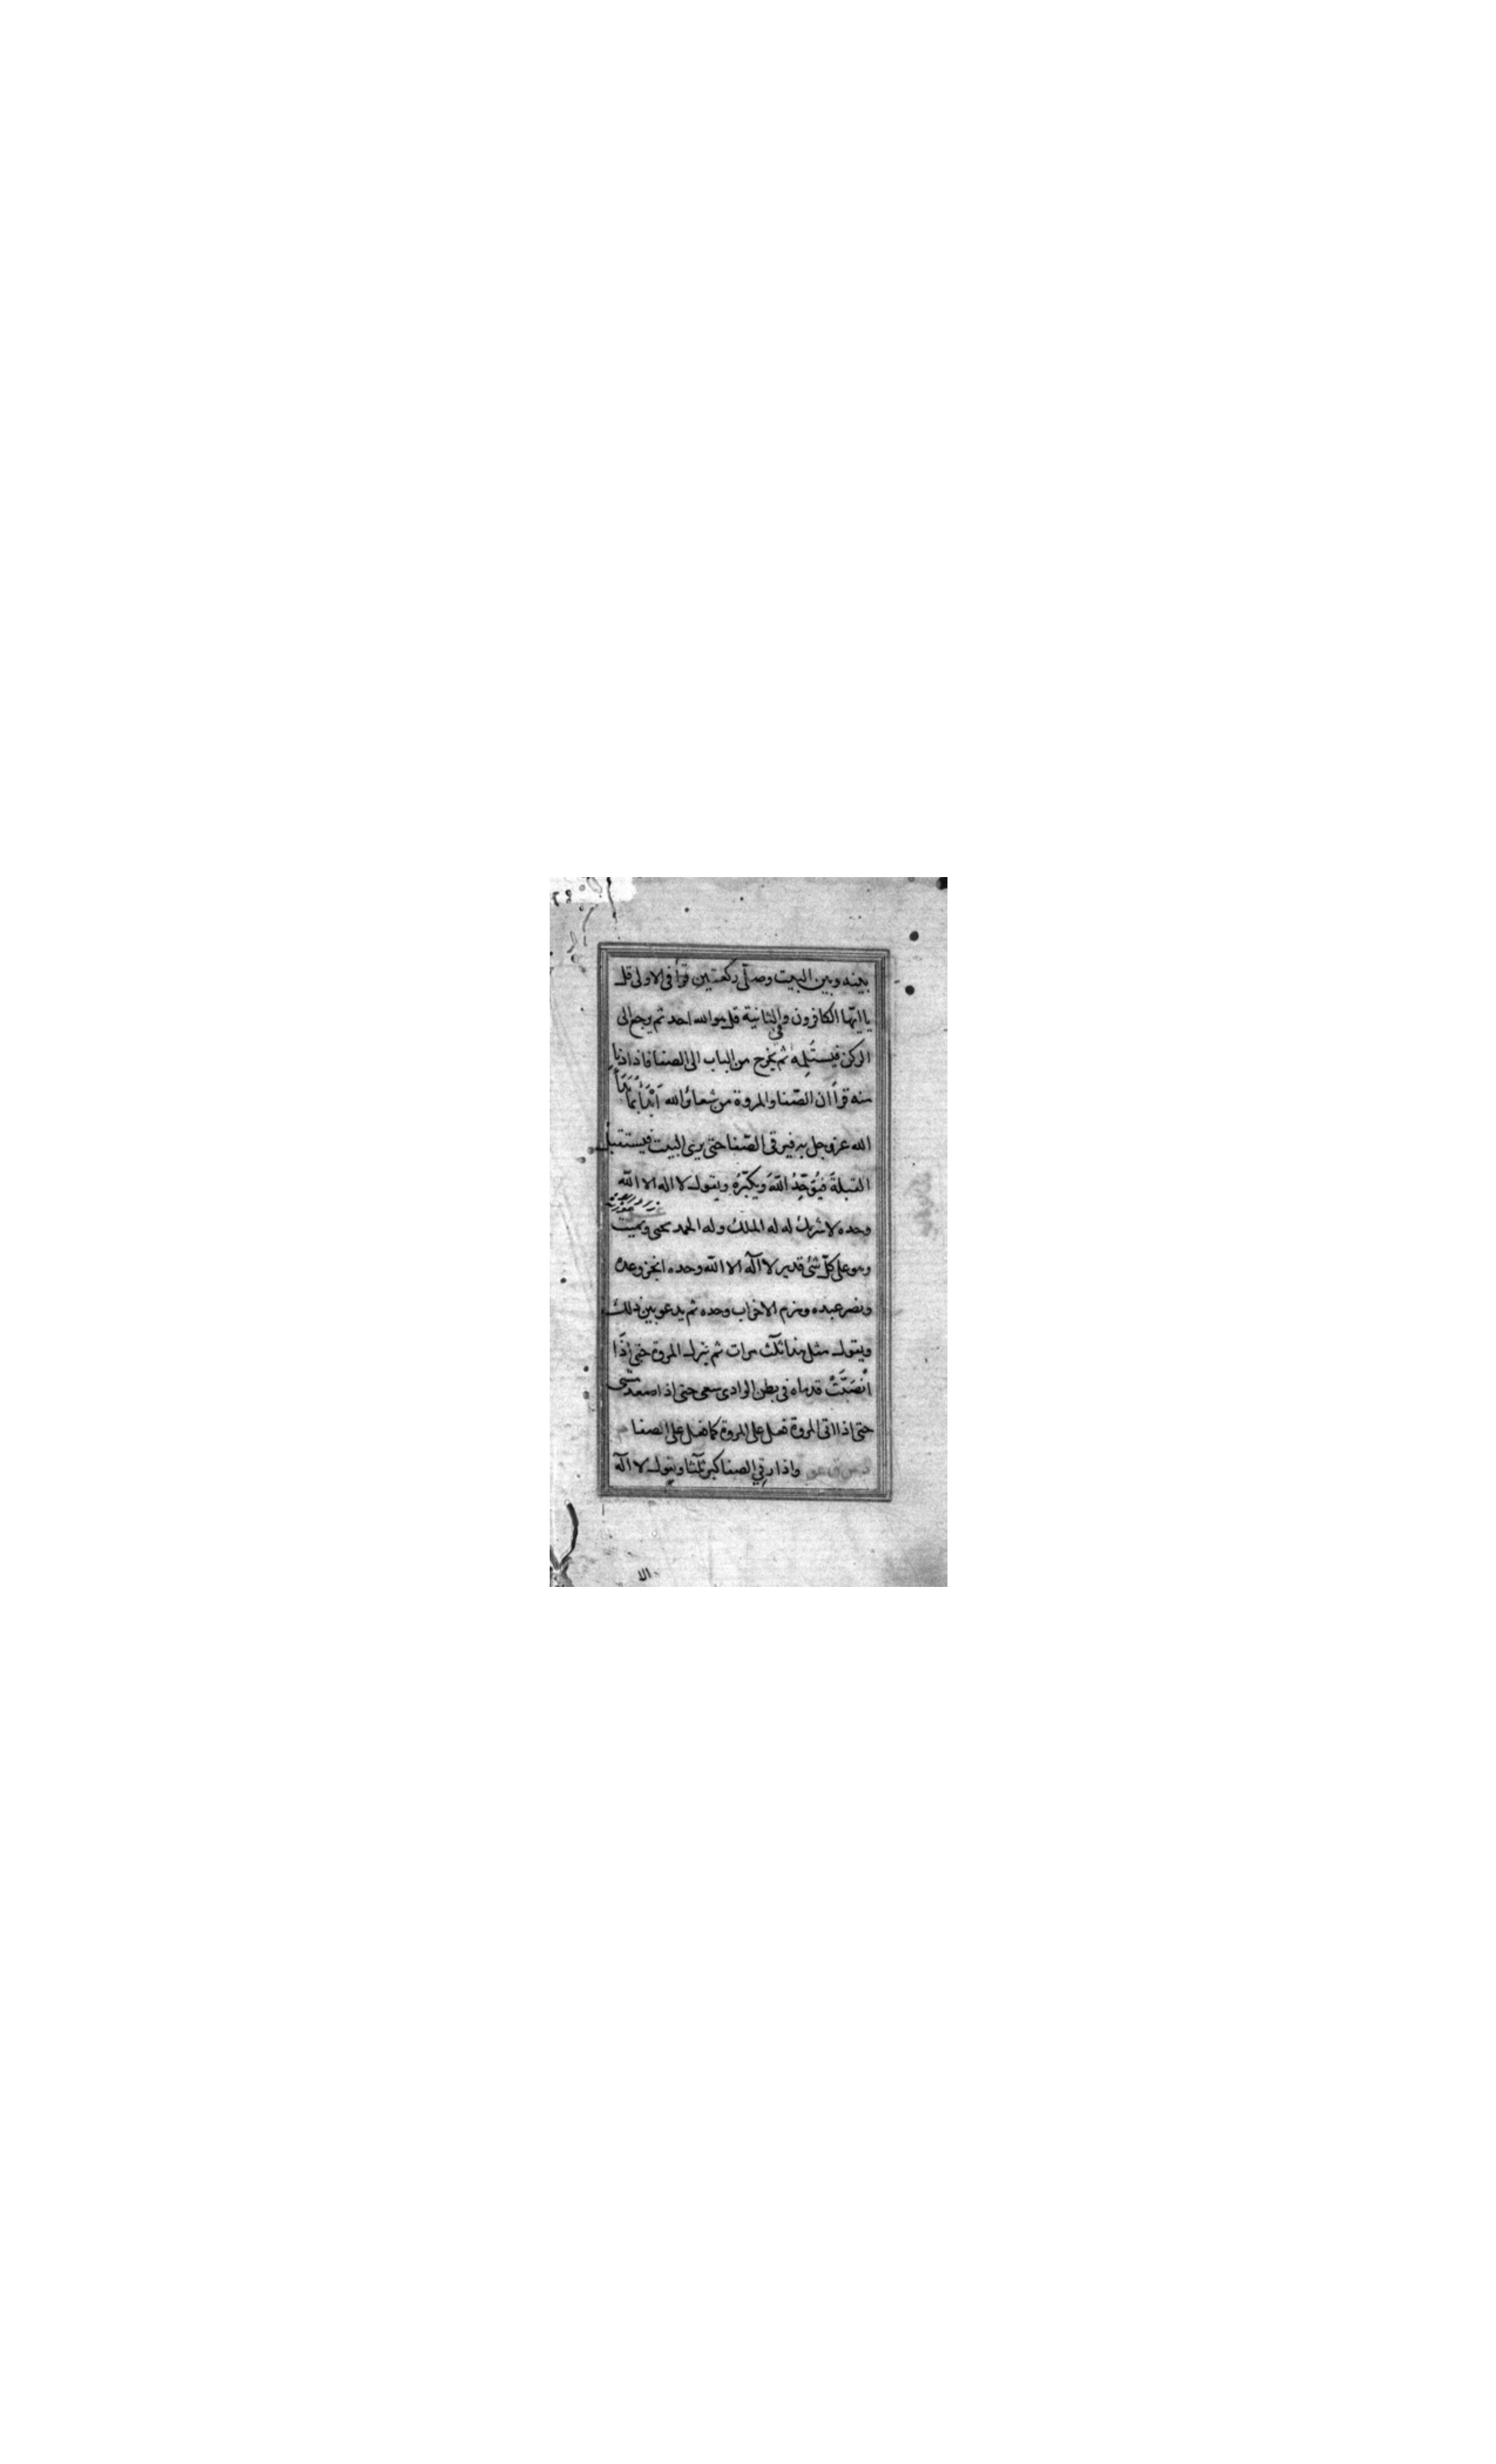 بينه وبين البيت وصلّى ركعتين قرأ فى الاولى قل
يا ايّها الكافرون وفي الثانية قل هو الله احد ثم يرجع الى
الركن فيستلمه ثم يخرج من الباب الى الصفا فاذا دنا
منه قرأ ان الصّفا والمروة من شعائر الله اَبْدَأُ بِمَا بَدَأَ
الله عز وجل به فيرقى الصّفا حتى يرى البيت فيستقبل
القبلةَ فيُوَحِّدُ اللّهَ ويكبّرهُ ويقول لا اله الا اللّه
وحده لا شريك له له الملك وله الحمد يحيى ويميت
وهو على كلّ شئ قدير لا اله الا اللّه وحده انجز وعده
ونصر عبده وهزم الاحزاب وحده ثم يدعو بين ذلك
ويقول مثل هذا ثلث مرات ثم ينزل المروة حتى اذَا
انْصَبَّتْ قدماه فى بطن الوادى سعى حتى اذا صعد مشى
حتى اذا اتى المروة فعل على المروة كما فعل على الصفا م
واذا رقي الصفا كبر ثلثا ويقول لا اله
الا